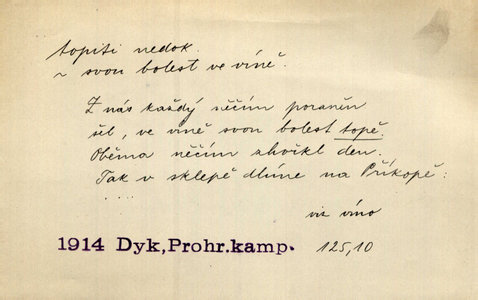 topiti nedok.
~ svou bolest ve víně.
Z nás každý něčím poraněn
šel, ve víně svou bolest topě.
Oběma něčím zhořkl den.
Tak v sklepě dlíme na Příkopě:
....
viz víno
1914 Dyk, Prohr. kamp. 125,10